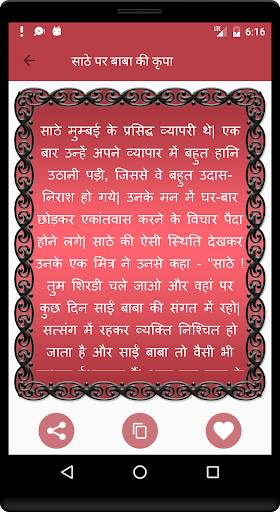 6:16
साठे पर बाबा की कृपा
साठे मुम्बई के प्रसिद्ध व्यापारी थे| एक
बार उन्हें अपने व्यापार में बहुत हानि
उठानी पड़ी, जिससे वे बहुत उदास-
निराश हो गये| उनके मन में घर-बार
छोड़कर एकांतवास करने के विचार पैदा
होने लगे| साठे की ऐसी स्थिति देखकर
उनके एक मित्र ने उनसे कहा - "साठे !
तुम शिरडी चले जाओ और वहां पर
कुछ दिन साईं बाबा की संगत में रहो|
सत्संग में रहकर व्यक्ति निश्चिंत हो
जाता है और साईं बाबा तो वैसी भी